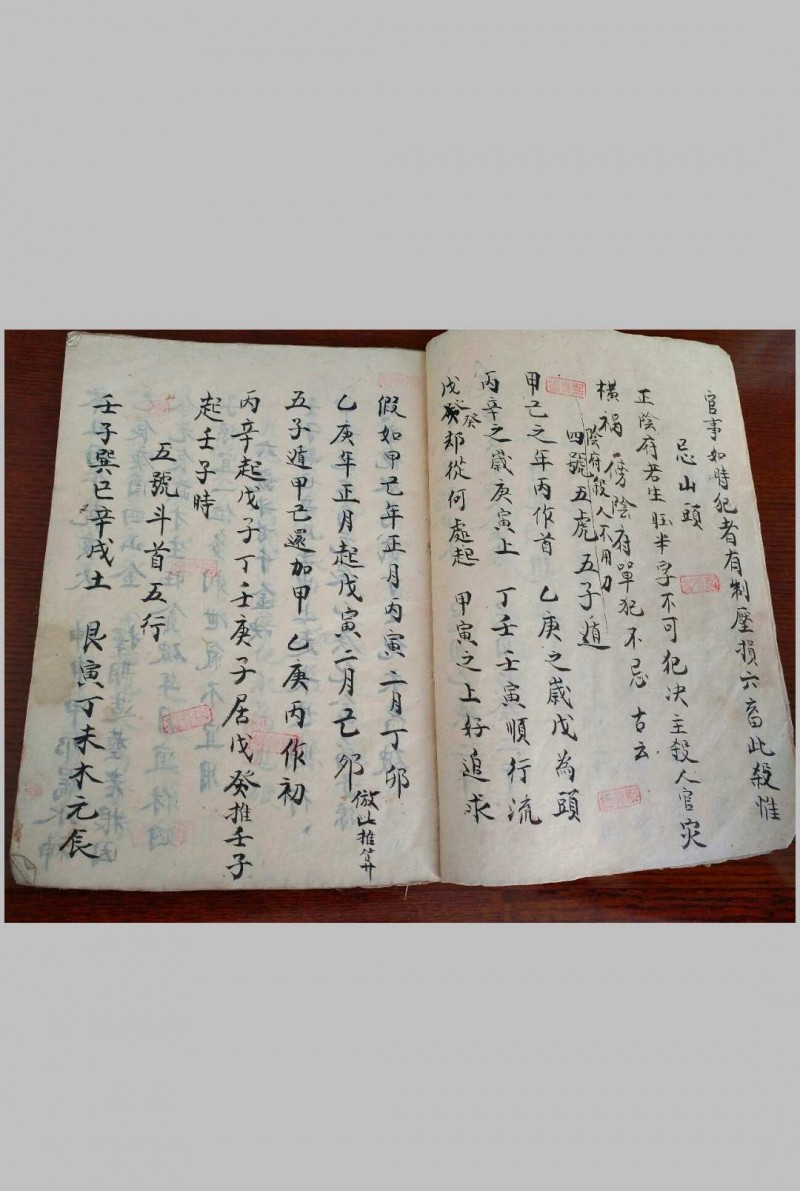 官事如時犯者有制壓損六畜此殺惟
忌山頭
正陰府若生旺半字不可犯决主殺人官灾
橫禍 傍陰府單犯不忌 古云
陰府殺人不用刀
四號五虎五子遁
甲己之年丙作首 乙庚之歲戊為頭
丙辛之歲庚寅上 丁壬壬寅順行流
戊癸却從何處起 甲寅之上好追求
假如甲己年正月丙寅二月丁卯
乙庚年正月起戊寅二月己卯 倣此推算
五子遁甲己還加甲 乙庚丙作初
丙辛起戊子丁壬庚子居戊癸推壬子
起壬子時
五號斗首五行
壬子巽巳辛戌土 艮寅丁未木元辰